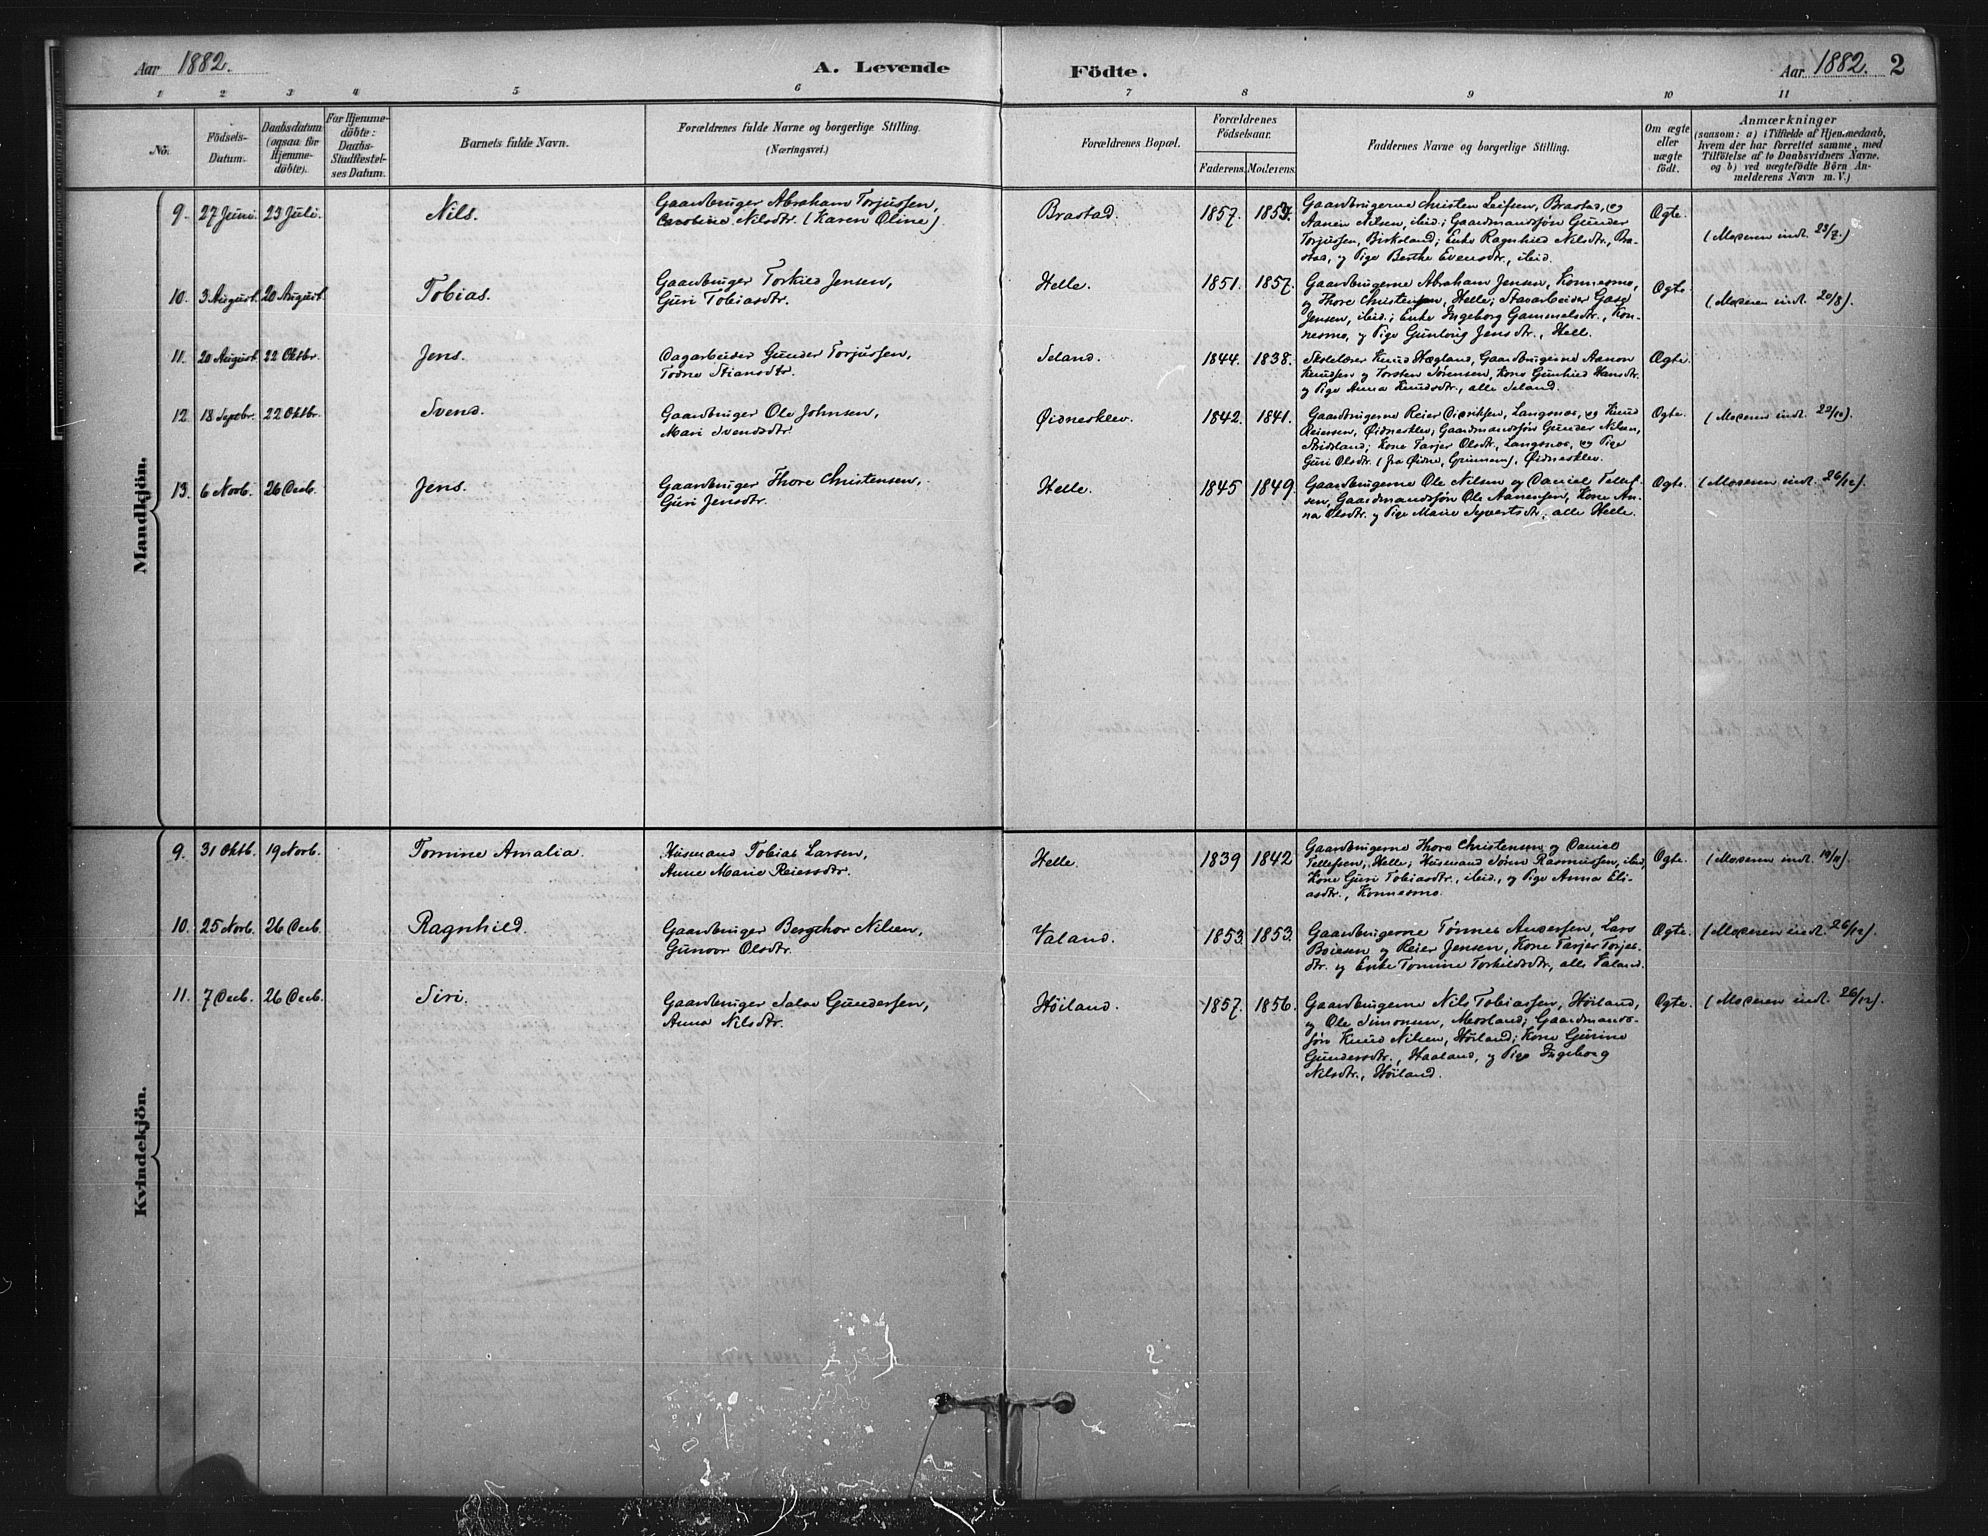 Aar 1882.
A. Levende
Födte.
Aar 1882. 2
1 2 3 4 5 6 7 8 9 10 11
No.
Födsels-
Datum.
Daabsdatum
(ogsaa for
Hjemme-
döbte).
For Hjemme-
döbte:
Daabs-
Stadfæstel-
ses Datum.
Barnets fulde Navn.
Forældrenes fulde Navne og borgerlige Stilling.
(Næringsvei.)
Forældrenes Bopæl.
Forældrenes
Födselsaar.
Faderens. Moderens.
Faddernes Navne og borgerlige Stilling.
Om ægte
eller
uægte
födt.
Anmærkninger
(saasom: a) i Tilfælde af Hjemmedaab,
hvem der har forrettet samme, med
Tilföielse af to Daabsvidners Navne,
og b) ved uægtefödte Börn An-
melderens Navn m. V.)
Mandkjön.
9. 27 Juni. 23 Juli. Nils.
Gaardbruger Abraham Torjussen,
Caroline Nilsdtr. (Karen Oline)
Brastad. 1857. 1859.
Gaardbrugerne Christen Leifsen, Brastad, og
Aanen Nilsen, ibid.; Gaardmandssøn Gunder
Torjussen, Birkeland; Enke Ragnhild Nilsdtr., Bra-
stad, og Pige Berthe Evensdtr., ibid.
Ægte.
(Moderen indl. 23/7.)
10. 3 August. 20 August. Tobias.
Gaardbruger Torkild Jensen,
Guri Tobiasdtr.
Helle. 1851. 1857.
Gaardbrugerne Abraham Jensen, Konnesmo,
og Thore Christensen, Helle;
Jensen, ibid.; Enke Ingeborg Gammelsdtr., Kon-
nesmo, og Pige Gunlaug Jensdtr., Helle.
Ægte.
(Moderen indl. 20/8).
11. 20 August. 22 Oktbr. Jens.
Dagarbeider Gunder Torjussen,
Todne Stiansdtr.
Seland. 1844. 1838.
Skolelærer Knud Hægland, Gaardbrugerne Aanon
Knudsen og Torsten Sørensen, Kone Gunhild Hansdtr.
og Pige Anna Knudsdtr., alle Seland.
Ægte.
12. 18 Septbr. 22 Oktbr. Svend.
Gaardbruger Ole Johnsen,
Mari Svendsdtr.
Øidneskley. 1842. 1841.
Gaardbrugerne Reier Didriksen, Langenes, og Knud
Reiersen, Øidneskley; Gaardmandssøn Gunder Nilsen,
Kone Tarjer Olsdtr., Langenes, og Pige
Guri Olsdtr. (fra Øidne, Grinnem), Øidneskley.
Ægte.
(Moderen indl. 22/10).
13. 6 Novb. 26 Decb. Jens.
Gaardbruger Thore Christensen,
Guri Jensdtr.
Helle. 1845 1849.
Gaardbrugerne Ole Nilsen og Daniel Tellef-
sen, Gaardmandssøn Ole Aanensen, Kone An-
na Olsdtr. og Pige Marie Syvertsdtr., alle Helle.
Ægte.
(Moderen indl. 26/12).
Kvindekjön.
9. 31 Oktb. 19 Novb. Tomine Amalia.
Husmand Tobias Larsen,
Anne Marie Reiersdtr.
Helle. 1839 1842
Gaardbrugerne Thore Christensen og Daniel
Tellefsen, Helle; Husmand Sørn Rasmussen, ibid.,
Kone Guri Tobiasdtr., ibid., og Pige Anna Eli-
asdtr., Konnesmo.
Ægte.
(Moderen indl. 19/11).
10. 25 Novb. 26 Decb. Ragnhild.
Gaardbruger Bergthor Nilsen,
Gunvor Olsdtr.
Valand. 1853. 1853.
Gaardbrugerne Tønnes Andersen, Lars
Boiesen og Reier Jensen, Kone Tarjer Torjes-
dtr. og Enke Tomine Torkildsdtr., alle Valand.
Ægte.
(Moderen indl. 26/12).
11. 7 Decb. 26 Decb. Siri.
Gaardbruger Salve Gundersen,
Anna Nilsdtr.
Høiland. 1857. 1856.
Gaardbrugerne Nils Tobiassen, Høiland,
og Ole Simonsen, Mersland; Gaardmands-
søn Knud Nilsen, Høiland; Kone Gurine
Gundersdtr., Haaland, og Pige Ingeborg
Nilsdtr., Høiland.
Ægte.
(Moderen indl. 26/12).